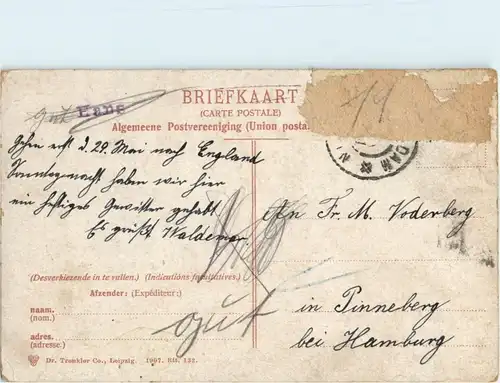 Hans
gut
BRIEFKAART
(CARTE POSTALE)
Algemeene Postvereeniging (Union posta
DAM
Gehen erst d. 29. Mai nach England
Sonntagnacht haben wir hier
ein heftiges Gewitter gehabt
Es grüßt Waldemar.
An Fr. M. Voderberg
in Pinneberg
bei Hamburg
(Desverkiezende in te vullen.) (Indications facultatives.)
Afzender: (Expéditeur:)
naam.
(nom.)
adres.
(adresse.)
gut
Dr. Trenkler Co., Leipzig. 1907. Btt. 132.